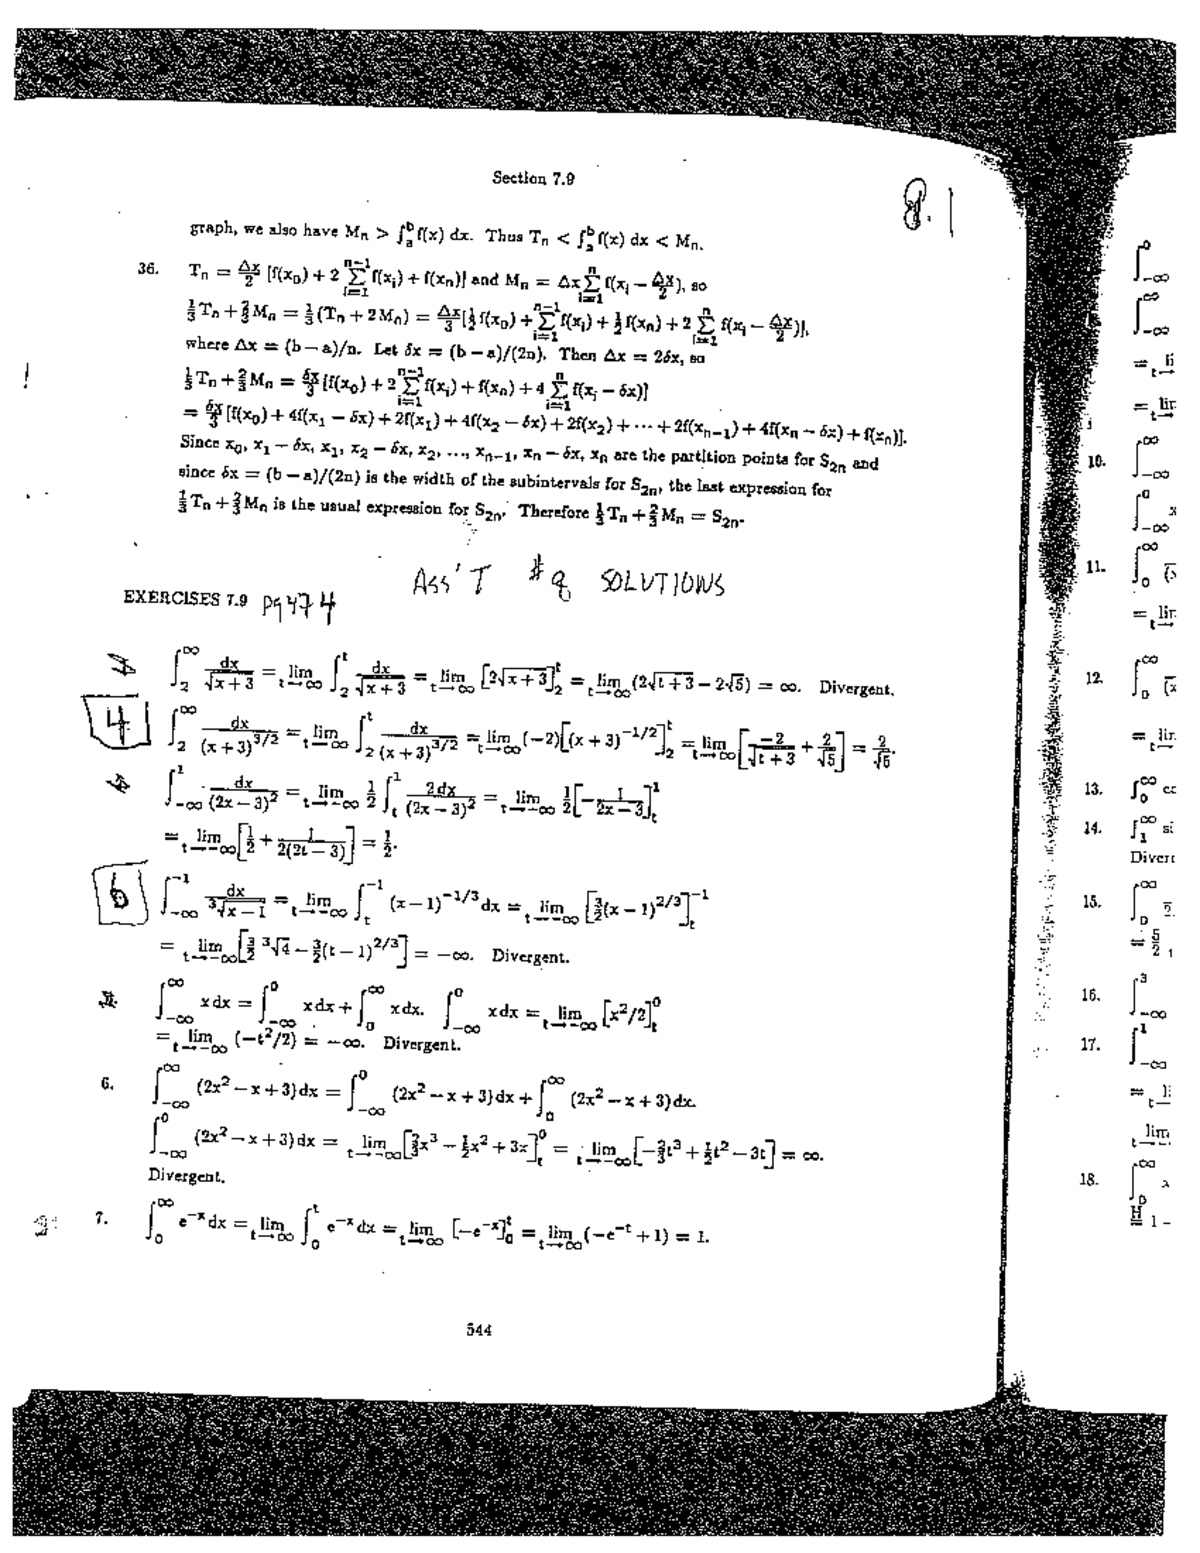 Section 7.9
8.1
graph, we also have Mₙ > ∫ₐᵇ f(x) dx. Thus Tₙ < ∫ₐᵇ f(x) dx < Mₙ.
36. Tₙ = Δx/2 [f(x₀) + 2 ∑_{i=1}^{n−1} f(xᵢ) + f(xₙ)] and Mₙ = Δx ∑_{i=1}^{n} f(xᵢ − Δx/2), so
1/3 Tₙ + 2/3 Mₙ = 1/3 (Tₙ + 2Mₙ) = Δx/3 [1/2 f(x₀) + ∑_{i=1}^{n−1} f(xᵢ) + 1/2 f(xₙ) + 2 ∑_{i=1}^{n} f(xᵢ − Δx/2)],
where Δx = (b − a)/n. Let δx = (b − a)/(2n). Then Δx = 2δx, so
1/3 Tₙ + 2/3 Mₙ = δx/3 [f(x₀) + 2 ∑_{i=1}^{n−1} f(xᵢ) + f(xₙ) + 4 ∑_{i=1}^{n} f(xᵢ − δx)]
= δx/3 [f(x₀) + 4f(x₁ − δx) + 2f(x₁) + 4f(x₂ − δx) + 2f(x₂) + ⋯ + 2f(xₙ₋₁) + 4f(xₙ − δx) + f(xₙ)].
Since x₀, x₁ − δx, x₁, x₂ − δx, x₂, ..., xₙ₋₁, xₙ − δx, xₙ are the partition points for S₂ₙ and
since δx = (b − a)/(2n) is the width of the subintervals for S₂ₙ, the last expression for
1/3 Tₙ + 2/3 Mₙ is the usual expression for S₂ₙ. Therefore 1/3 Tₙ + 2/3 Mₙ = S₂ₙ.
ASS'T # 9 SOLUTIONS
EXERCISES 7.9 pg 474
∫_2^∞ dx/√(x + 3) = lim_{t→∞} ∫_2^t dx/√(x + 3) = lim_{t→∞} [2√(x + 3)]_2^t = lim_{t→∞} (2√(t + 3) − 2√5) = ∞. Divergent.
4 ∫_2^∞ dx/(x + 3)^{3/2} = lim_{t→∞} ∫_2^t dx/(x + 3)^{3/2} = lim_{t→∞} (−2)[(x + 3)^{−1/2}]_2^t = lim_{t→∞} [−2/√(t + 3) + 2/√5] = 2/√5.
∫_{−∞}^1 dx/(2x − 3)² = lim_{t→−∞} 1/2 ∫_t^1 2dx/(2x − 3)² = lim_{t→−∞} 1/2 [−1/(2x − 3)]_t^1
= lim_{t→−∞} [1/2 + 1/(2(2t − 3))] = 1/2.
6 ∫_{−∞}^{−1} dx/∛(x − 1) = lim_{t→−∞} ∫_t^{−1} (x − 1)^{−1/3} dx = lim_{t→−∞} [3/2 (x − 1)^{2/3}]_t^{−1}
= lim_{t→−∞} [3/2 ∛4 − 3/2 (t − 1)^{2/3}] = −∞. Divergent.
∫_{−∞}^∞ x dx = ∫_{−∞}^0 x dx + ∫_0^∞ x dx. ∫_{−∞}^0 x dx = lim_{t→−∞} [x²/2]_t^0
= lim_{t→−∞} (−t²/2) = −∞. Divergent.
6. ∫_{−∞}^∞ (2x² − x + 3) dx = ∫_{−∞}^0 (2x² − x + 3) dx + ∫_0^∞ (2x² − x + 3) dx.
∫_{−∞}^0 (2x² − x + 3) dx = lim_{t→−∞} [2/3 x³ − 1/2 x² + 3x]_t^0 = lim_{t→−∞} [−2/3 t³ + 1/2 t² − 3t] = ∞.
Divergent.
7. ∫_0^∞ e^{−x} dx = lim_{t→∞} ∫_0^t e^{−x} dx = lim_{t→∞} [−e^{−x}]_0^t = lim_{t→∞} (−e^{−t} + 1) = 1.
544
∫_{−∞}^0
∫_{−∞}^∞
10. ∫_{−∞}^∞
11. ∫_0^∞
12. ∫_0^∞
13. ∫_0^∞
14. ∫_1^∞ si
15. ∫_0^∞
16. ∫_{−∞}^3
17. ∫_{−∞}^1
18. ∫_0^∞